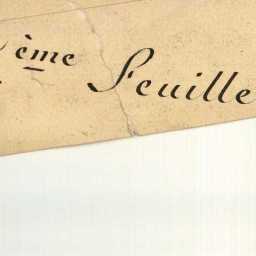 ème Feuille